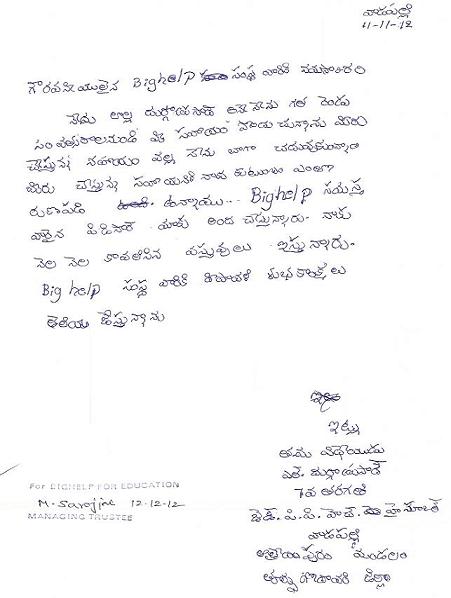 వాడపల్లి
11-11-12
గౌరవనీయులైన Bighelp సంస్థ వారికి నమస్కారం
నేను అల్ల దుర్గాప్రసాద్ అనే నేను గత రెండు
సంవత్సరాలనుండి మీ సహాయం పొందుచున్నాను మీరు
చేస్తున్న సహాయం వల్ల నేను బాగా చదువుతున్నాను
మీరు చేస్తున్న సహాయానికి నాడి కుటుంబం ఎంతగా
రుణపడి ఉన్నాయి... Bighelp సమస్త
వారైన మాకు అంద చేస్తున్నారు. నాకు
నెల నెల కావలసిన వస్తువులు ఇస్తున్నారు.
Big help సంస్థ వారికి దీపావళి శుభాకాంక్షలు
తెలియ జేస్తున్నాను
ఇట్లు
తమ విధేయుడు
ఎ. దుర్గాప్రసాద్
7వ తరగతి
జెడ్. పి. పి. హెచ్. హైస్కూల్
వాడపల్లి
ఆత్రేయపురం మండలం
తూర్పు గోదావరి జిల్లా
For BIGHELP FOR EDUCATION
M. Sarojini 12-12-12
MANAGING TRUSTEE